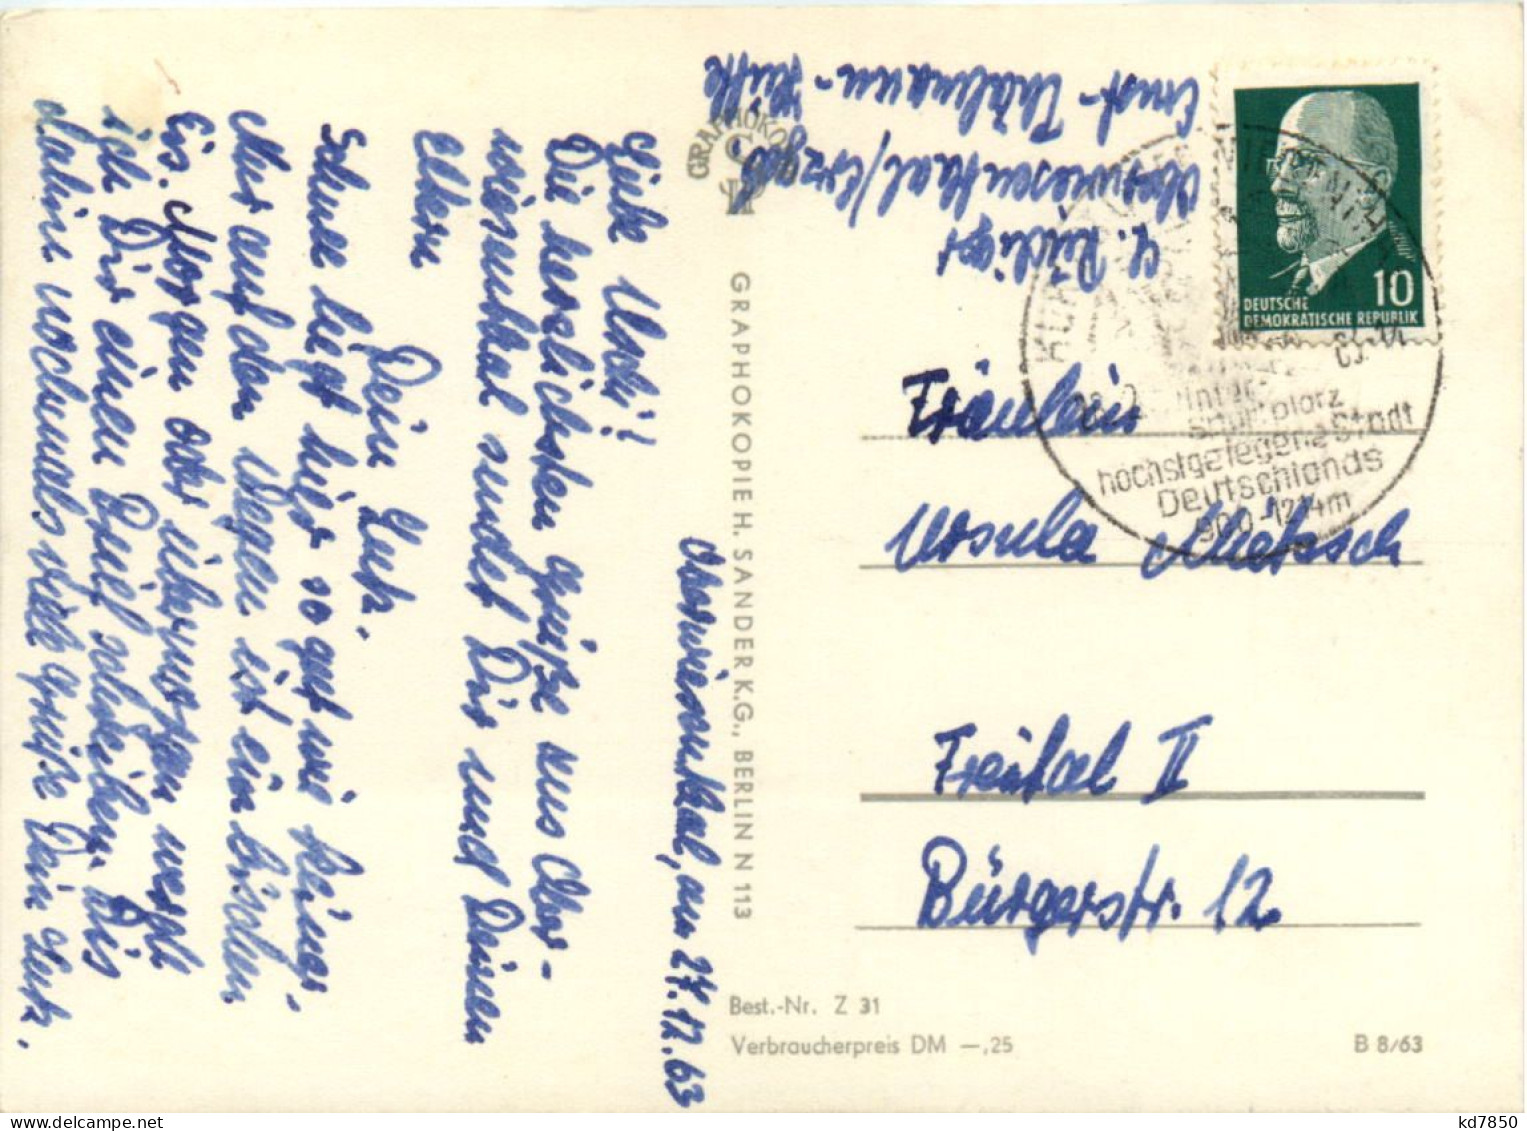 Oberwiesenthal, am 27.12.63
Liebe Uschi!
Die herzlichsten Grüße aus Ober-
wiesenthal sendet Dir und Deinen
Eltern
Dein Lutz.
Schnee liegt hier so gut wie keiner,
Nur auf den Wegen ist ein bischen
Eis. Morgen oder übermorgen werde
ich Dir einen Brief schreiben. Bis
dahin nochmals viele Grüße Dein Lutz.
L. Rüdiger
Oberwiesenthal/Erzgeb.
Ernst-Thälmann-Hütte
GRAPHOKOPIE H. SANDER K.G., BERLIN N 113
10
DEUTSCHE
DEMOKRATISCHE REPUBLIK
Sportplatz
höchstgelegene Stadt
Deutschlands
900-1214m
Fräulein
Ursula Mietzsch
Freital II
Bürgerstr. 12
Best.-Nr. Z 31
Verbraucherpreis DM —,25
B 8/63
kd7850